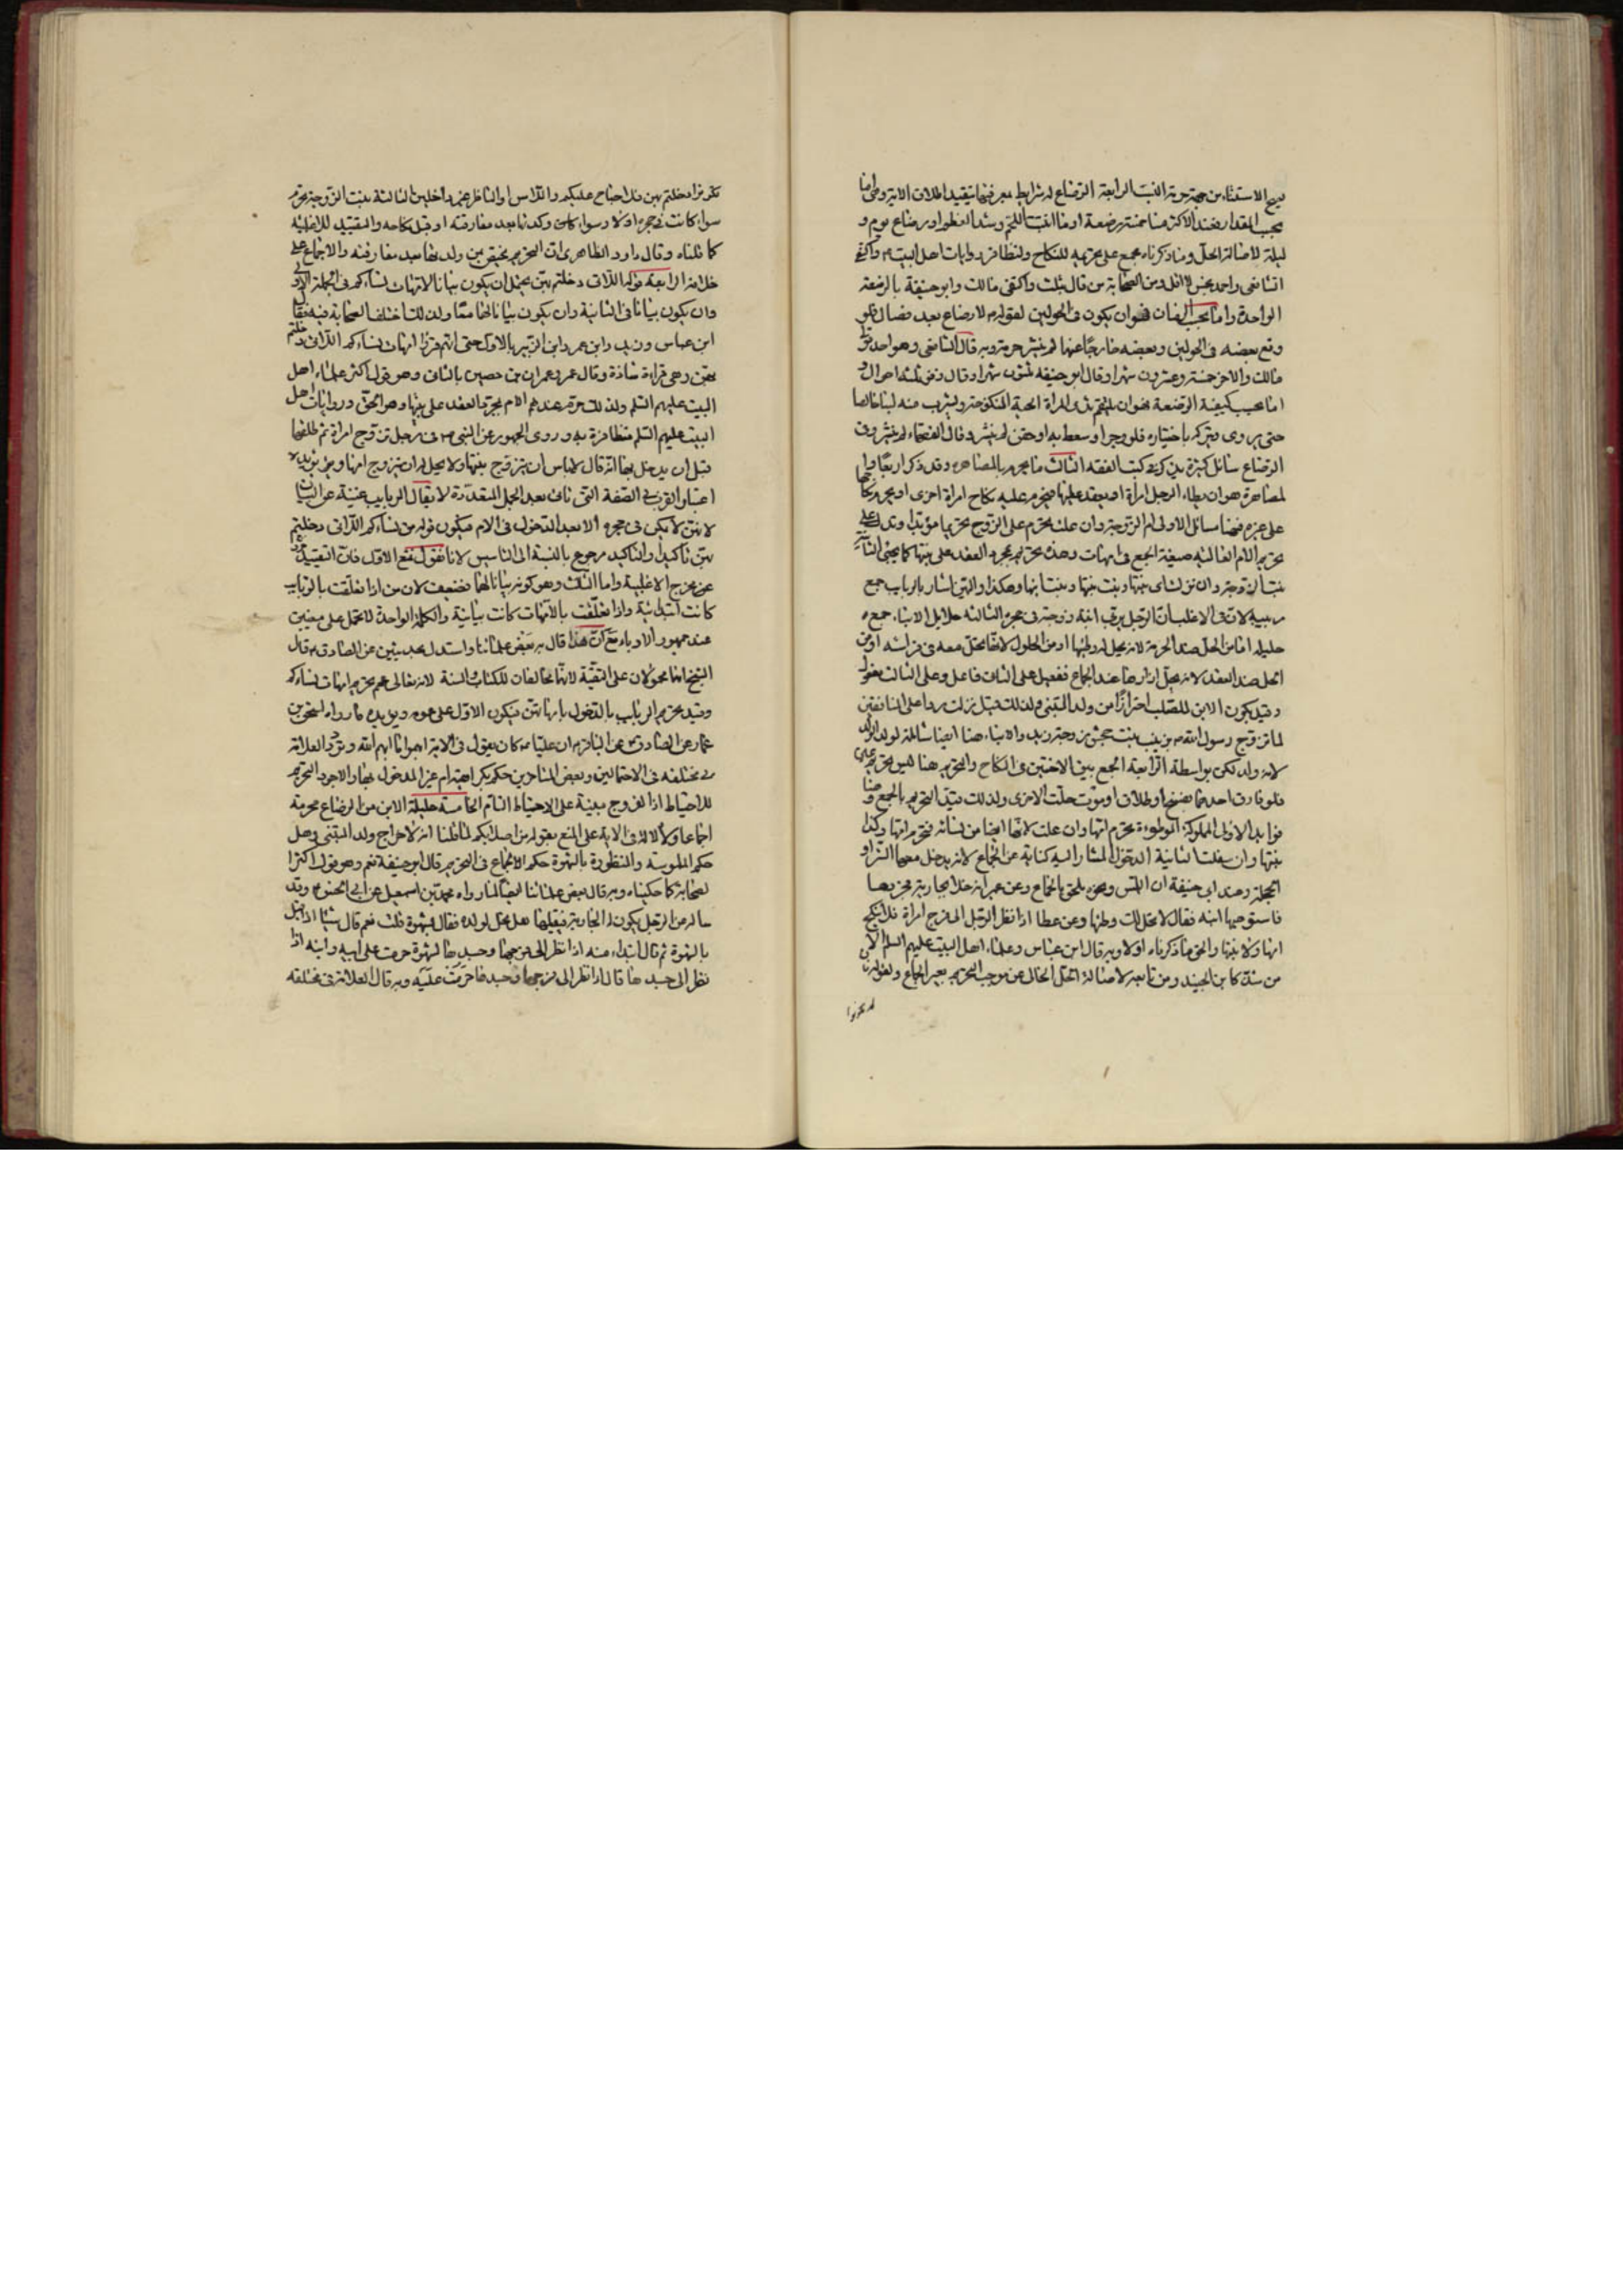 يصح الاستثناء من جهة حرمة النسب الرابعة الرضاع له شرايط معرفتها يتقيد اطلاق الاية وهى اما
بحسب المقدار فعند الاكثر منا خمسة عشر رضعة او ما انبت اللحم وشد العظم او رضاع يوم و
ليلة لاصالة الحل وما ذكرناه مجمع على تحريمه للنكاح ولتظافر روايات اهل البيت ع واكتفى
الشافعى واحمد بخمس لا اقل ومن الصحابة من قال بثلث واكتفى مالك وابو حنيفة بالرضعة
الواحدة واما بحسب الزمان فهو ان يكون فى الحولين لقوله ع لا رضاع بعد فصال فلو
وقع بعضه فى الحولين وبعضه خارجا عنها لم ينشر حرمة وبه قال الشافعى وهو احد قولى
مالك والاخر خمسة وعشرون شهرا وقال ابو حنيفه ثلثون شهرا وقال زفر ثلثة احوال و
اما بحسب كيفية الرضعة فهو ان يلتقم ثدى المراة الحية المنكوحة ويشرب منه لبنا خالصا
حتى يروى ويتركه باختياره فلو وجر او سعط به او حقن لم ينشر وقال الفقهاء ينشر وفى
الرضاع مسائل كثيرة يذكر فى كتب الفقه الثالث ما يحرم بالمصاهره وقد ذكر اربعا وا
لمصاهرة هو ان يطاء الرجل امرأة او يعقد عليها فيحرم عليه نكاح امراة اخرى او يحرم نكاحها
على غيره فهنا مسائل الاولى ام الزوجة وان علت يحرم على الزوج تحريما مؤبدا ويدل على
تحريم الام العالية صيغة الجمع فى امهات وهذه تحرم بمجرد العقد على بنتها كما يجئ الثانية
بنت الزوجة وان نزلت اى بنتها وبنت بنتها وبنت ابنها وهكذا واليه اشار بالربايب جمع
ربيبة لان فى الاغلب ان الرجل يربى ابنة زوجته فى حجره الثالثه حلايل الابناء جمع
حليله اما من الحل ضد الحرمة لانه يحل له وطيها او من الحلول لانها تحل معه فى فراشه او من
الحل ضد العقد لانه يحل ازارها عند الجماع ففعيل على الثانى فاعل وعلى الثالث مفعول
وقيد بكون الابن للصلب احترازا من ولد المتبنى ولذلك قيل نزلت ردا على المنافقين
لما تزوج رسول الله ص زينب بنت جحش زوجة زيد والابناء هنا ايضا شاملة لولد الولد
لانه ولد لكن بواسطة الرابعة الجمع بين الاختين فى النكاح والتحريم هنا ليس تحريم عين
فلو فارق احدهما بفسخ او طلاق او موت حلت الاخرى ولذلك قيد التحريم بالجمع وهنا
فوايد الاولى المملوكة الموطوءة تحرم امها وان علت لانها ايضا من نسائه فتحرم امها وكذا
بنتها وان سفلت الثانية الدخول المشار اليه كناية عن الجماع لانه يدخل معها الستر او
الحجلة وعند ابى حنيفة ان اللمس ونحوه يلحق بالجماع وعن عمر انه خلا بجارية فجردها
فاستوهبها ابنه فقال لا تحل لك وطيها وعن عطا اذا نظر الرجل الى فرج امراة فلا ينكح
امها ولا بنتها والحق ما ذكرناه اولا وبه قال ابن عباس وعلماء اهل البيت عليهم السلم الا
من شذ كابن الجنيد ومن تابعه لاصالة الحل الخالى عن موجب التحريم بغير الجماع ولقوله فان
لم تكونوا
تكونوا دخلتم بهن فلا جناح عليكم واللامس او الناظر غير داخلين الثالثة بنت الزوجة تحرم
سواء كانت فى حجره او لا وسواء كان ولدتها بعد مفارقته او قبل نكاحه والتقييد للاغلبية
كما قلناه وقال داود الظاهرى ان التحريم يختص بمن ولدتها بعد مفارقته والاجماع على
خلافه الرابعة قوله اللاتى دخلتم بهن يحتمل ان يكون بيانا لامهات نسائكم فى الجملة الاولى
وان يكون بيانا فى الثانية وان يكون بيانا لهما معا ولذلك اختلف الصحابة فيه فقال
ابن عباس وزيد وابن عمر وابن الزبير بالاول حتى انهم قرؤا امهات نسائكم اللاتى دخلتم
بهن وهى قراءة شاذة وقال عمر وعمران بن حصين بالثانى وهو قول اكثر علماء اهل
البيت عليهم السلم ولذلك حرمت عندهم الام بمجرد العقد على بنتها وهو الحق وروايات اهل
البيت عليهم السلم متظافرة به وروى الجمهور عن النبى ص فى رجل تزوج امراة ثم طلقها
قبل ان يدخل بها انه قال لا باس ان يتزوج بنتها ولا يحل له ان يتزوج امها ويؤيده
اعتبار القرب فى الصفة التى تاتى بعد الجمل المتعددة لا يقال الربايب غنية عن البيان
لانهن لا يكن فى حجره الا بعد الدخول فى الام فيكون قوله من نسائكم اللاتى دخلتم
بهن تاكيدا والتاكيد مرجوع بالنسبة الى التاسيس لانا نقول نمنع الاول فان التقييد
خرج مخرج الاغلبية واما الثالث وهو كونه بيانا لهما فضعيف لان من اذا تعلقت بالربايب
كانت ابتدائية واذا تعلقت بالامهات كانت بيانية والكلمة الواحدة لا تحمل على معنيين
عند جمهور الادباء مع ان هذا قال به بعض علمائنا واستدل بحديثين عن الصادق ع قال
الشيخ انهما محمولان على التقية لانهما مخالفان للكتاب والسنة لانه تعالى عم تحريم امهات نسائكم
وقيد تحريم الربايب بالدخول بامهاتهن فيكون الاول على عمومه ويؤيده ما رواه اسحق بن
عمار عن الصادق ع عن الباقر ع ان عليا ع كان يقول فى الاية ابهموا ما ابهم الله وتردد العلامة
فى مختلفه فى الاحتمالين وبعض المتاخرين حكم بكراهة ام غير المدخول بها والاجود التحريم
للاحتياط اذ الفروج مبنية على الاحتياط التام الخامسة حليلة الابن من الرضاع محرمة
اجماعا ولا دلالة فى الاية على المنع بقوله من اصلابكم لما قلنا انه لاخراج ولد المتبنى وهل
حكم الملموسة والمنظورة بالشهوة حكم الجماع فى التحريم قال ابو حنيفة نعم وهو قول اكثر ا
لصحابة كما حكيناه وبه قال بعض علمائنا ايضا لما رواه محمد بن اسمعيل عن ابى الحسن ع وقد
ساله عن الرجل يكون له الجارية فيقبلها هل تحل لولده فقال بشهوة قلت نعم قال شيئا اذا قبل
بالشهوة ثم قال ابتداء منه اذا نظر الى فرجها وجسدها لشهوة حرمت على ابيه وابنه اذا
نظر الى جسدها قال اذا نظر الى فرجها وجسدها حرمت عليه وبه قال العلامة فى مختلفه